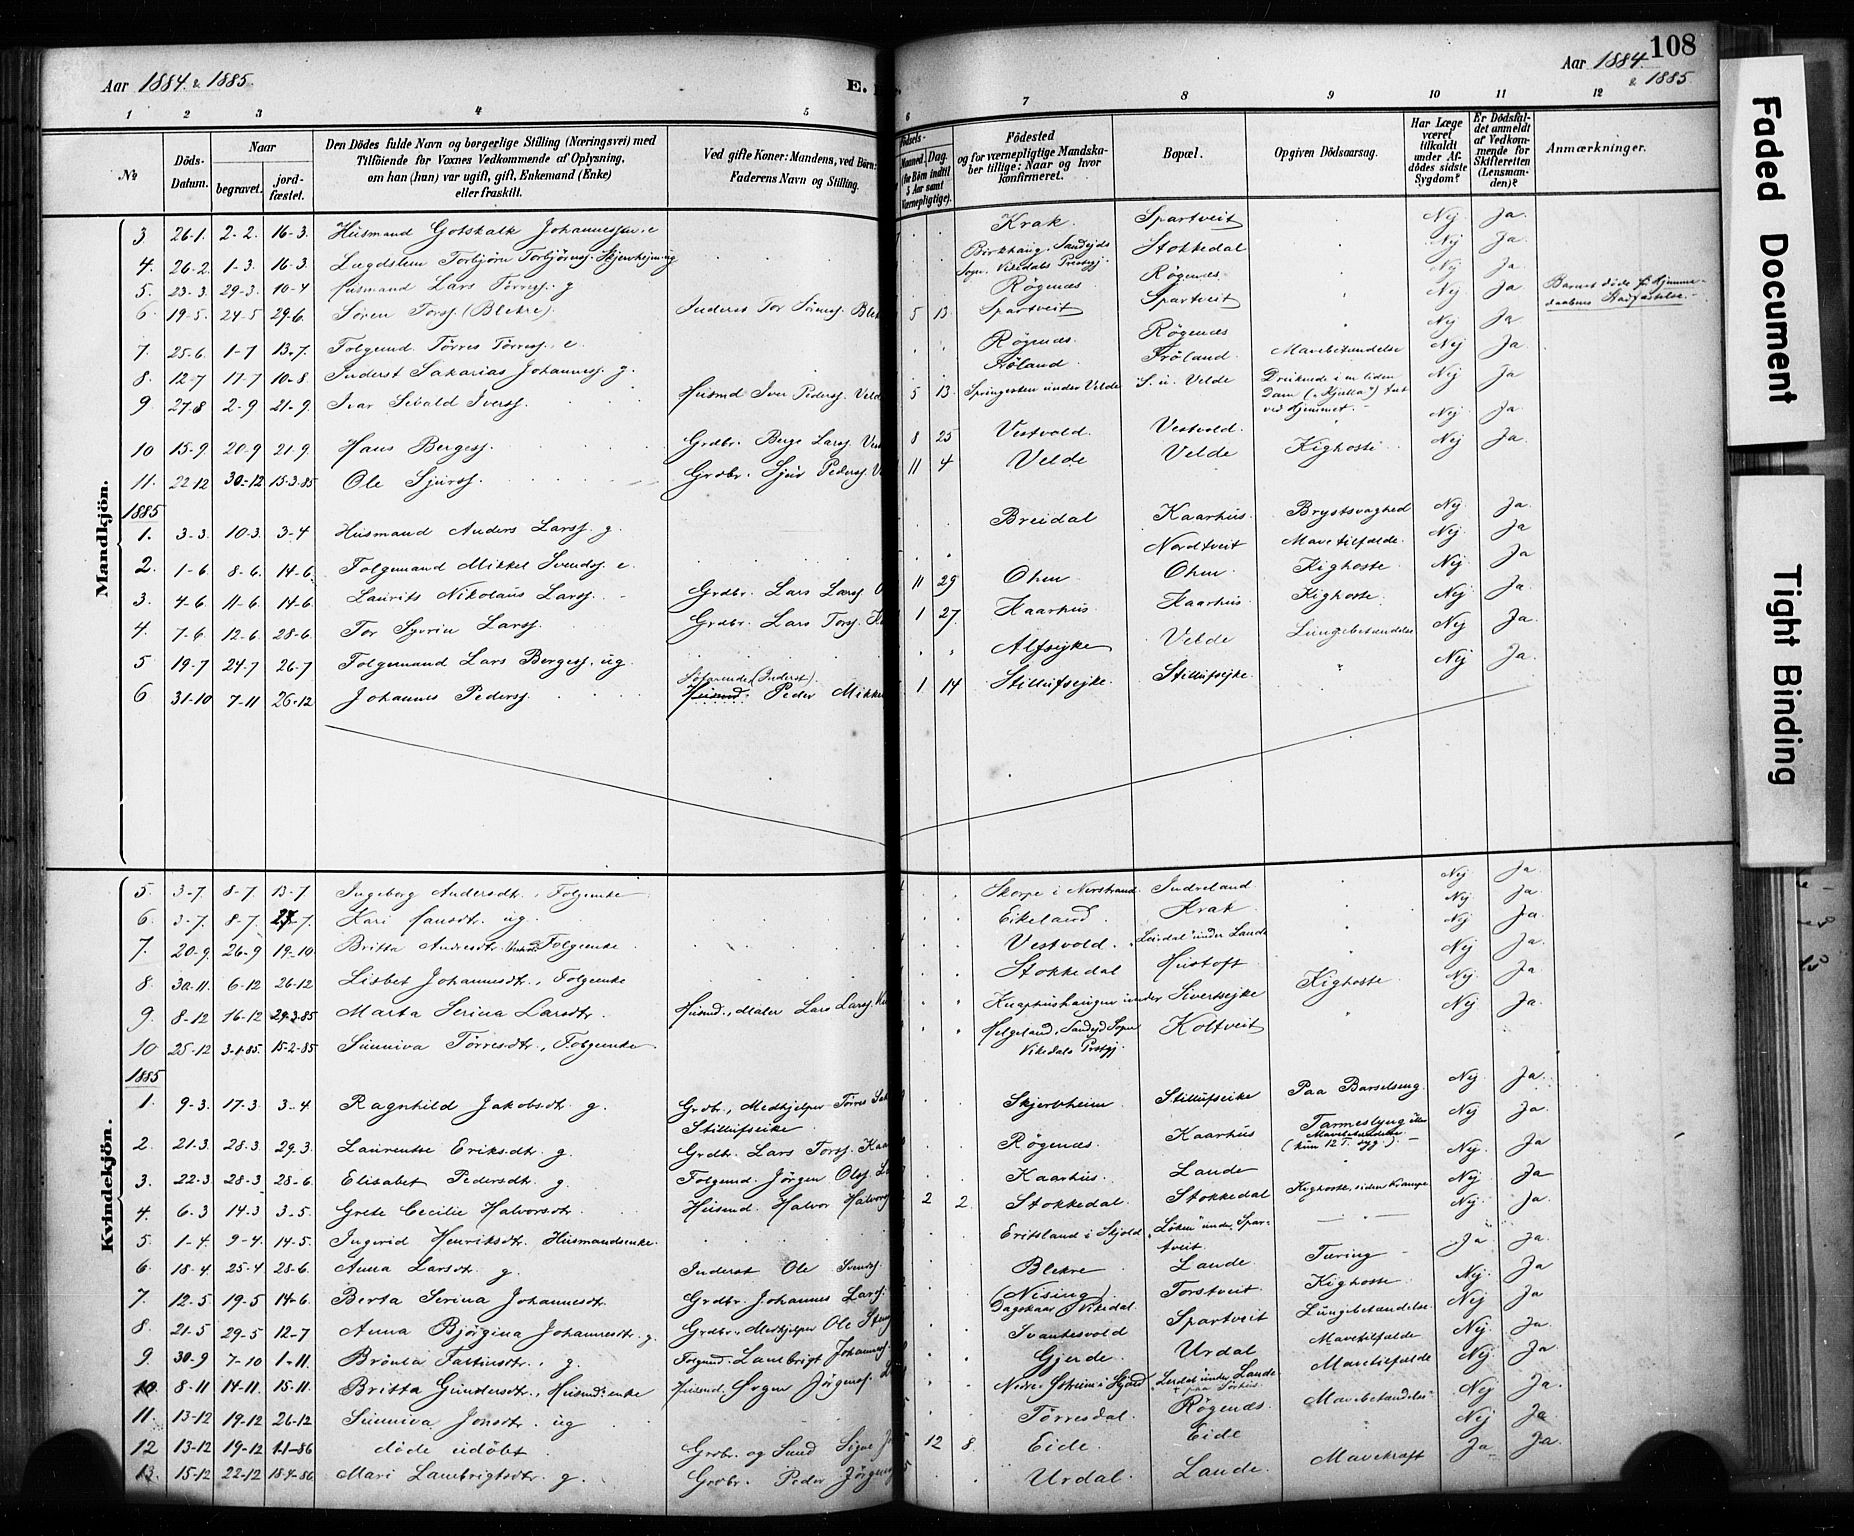 108
Aar 1884 & 1885
Aar 1884 & 1885
E.
1 2 3 4 5 6 7 8 9 10 11 12
No
Döds-Datum.
Naar
begravet.
jord-fæstet.
Den Dödes fulde Navn og borgerlige Stilling (Næringsvei) med
Tilföiende for Voxnes Vedkommende af Oplysning,
om han (hun) var ugift, gift, Enkemand (Enke)
eller fraskilt.
Ved gifte Koner: Mandens, ved Börn:
Faderens Navn og Stilling.
Födsels-
Maaned. Dag.
(for Börn indtil
5 Aar samt
Værnepligtige).
Födested
og for værnepligtige Mandska-
ber tillige: Naar og hvor
konfirmeret.
Bopæl.
Opgiven Dödsaarsag.
Har Læge
været
tilkaldt
under Af-
dödes sidste
Sygdom?
Er Dödsfal-
det anmeldt
af Vedkom-
mende for
Skifteretten
(Lensman-
den)?
Anmærkninger.
Mandkjön.
3 26-1. 2-2. 16-3. Husmand Gotskalk Johannessen e Krak. Spartveit Nej Ja
4. 26-2. 1-3. 16-3. Lægdslem Torbjörn Torbjörnss. Skjervheim ug Birkhaug, Sandejds Sogn. Vikedals Prestgj. Stokkedal Nej Ja
5. 23-3. 29-3. 10-4 Husmand Lars Törress. g Røgenæs Røgenæs Nej Ja
6. 19-5. 24-5 29-6. Sören Torss. (Blekre). Inderst Tor Sörenss. Blek 5 13. Spartveit Spartveit Nej Ja Barnet døde før Hjemme-daabens Stadfæstelse.
7. 25-6. 1-7 13-7. Folgemd. Törres Törress. e. Røgenæs Røgenæs Nej Ja
8. 12-7 17-7 10-8. Inderst Sakarias Johanness. g. Fröland Fröland. Mavebetændelse Nej Ja.
9 27-8 2-9 21-9. Ivar Sebald Iverss. Husmd Iver Pederss. Veld 5 13. Springesten under Velde S. u. Velde Druknede i en liden Dam („Kjella") tæt ved Hjemmet. Nej Ja
10 15-9. 20-9 21-9. Hans Bergess. Grdbr. Berge Larss. Ves 8 25 Vestvold. Vestvold. Nej Ja.
11. 22-12 30-12 15-3-85 Ole Sjurss. Grdbr. Sjur Pederss. V 11 4 Velde Velde Kighoste Nej Ja.
1885
1. 3-3. 10-3. 3-4 Husmand Anders Larss. g. Breidal Kaarhus. Brystsvaghed Nej Ja.
2. 1-6 8-6. 14-6. Folgemand Mikkel Svendss. e Nordtveit Mavetilfælde. Nej Ja
3. 4-6. 11-6. 14-6. Laurits Nikolaus Larss. Grdbr. Lars Larss. O 11 29 Ohm Ohm. Kighoste Nej. Ja
4. 7-6. 12-6. 28-6. Tor Syvrin Larss. Grdbr. Lars Torss. Ka 1 27. Kaarhus. Kaarhus. Kighoste. Nej Ja.
5 19-7 24-7 26-7 Folgemand Lars Bergess. ug. Alfsejke Velde Lungebetændelse Nej Ja.
6 31-10 7-11 26-12 Johannes Pederss. Söfarende (Inderst). Husmd. Peder Mikke 1 14 Stillufsejke. Stillufsejke " Nej Ja.
Kvindekjön.
5. 3-7. 8-7. 13-7 Ingeborg Andersdtr., Folgeenke Skorpe i Nerstrand. Indreland Nej Ja
6. 3-7. 8-7. 27-7. Kari Hansdtr. ug. Eikeland. Krak. Nej Ja.
7. 20-9. 26-9 19-10 Britta Andresdtr. Folgeenke. Vestvold. „Leirdal" under Lande Nej Ja.
8. 30-11. 6-12 26-12 Lisbet Johannesdtr., Folgeenke Stokkedal Hustoft Nej Ja.
9. 8-12 16-12 29-3-85 Marta Serina Larsdtr. Husmd., Maler Lars Larss. Knaphushaugen under Sivertsejke Kighoste. Nej Ja
10 25-12 3-1-85. 15-2-85 Sunniva Törresdtr., Folgeenke. Helgeland, Sandejd Sogn Vikedals Prstgj. Koltveit " Nej Ja.
1885
1. 9-3. 17-3. 3-4. Ragnhild Jakobsdtr. g. Grdbr., Medhjelper Törres Stillufseike Skjervheim Stillufseike Paa Barselseng. Nej Ja.
2. 21-3. 28-3. 29-3. Laurentse Eriksdtr. g. Grdbr. Lars Torss. Kaa Røgenæs. Kaarhus Tarmeslyng eller Mavebetændelse (kun 12 T. syg.). Nej Ja.
3. 22-3. 28-3 28-6. Elisabet Pedersdtr. g. Folgemd. Jörgen Olss. La Kaarhus. Lande Nej Ja
4. 6-3 14-3 3-5. Grete Cecilie Halvorsdtr. Husmd. Halvor Halvors 2 2. Stokkedal Stokkedal Kighoste, siden Krampe Nej Ja
5. 1-4. 9-4. 14-5. Ingerid Henriksdtr. Husmandsenke. Eritsland i Skjold „Löken" under Spar-tveit. Nej Ja.
6. 18-4. 25-4 28-6. Anna Larsdtr. g. Inderst Ole Svendss. Blekre Lande Tæring Ja Ja.
7. 12-5 19-5 14-6. Berta Serina Johannesdtr. Grdbr. Johannes Larss. (Nising) Torstveit. Kighoste Nej. Ja
8. 21-5 29-5 12-7 Anna Bjørgina Johannesdtr. g. Grdbr., Medhjelper Ole Dagskaar i Vikedal. Spartveit Lungebetændelse. Nej Ja
9. 30-9 7-10 1-11. Brönla Fastinsdtr. g. Folgemd. Lambrigt Johanness. Svantesvold Urdal Mavetilfælde Nej. Ja.
10. 8-11 14-11. 15-11. Britta Gundersdtr., Husmdsenke Husmd. Jörgenss. Gjerde. „Lerdal" under Lande Mavetilfælde Nej Ja.
11. 13-12 19-12 26-12 Sunniva Jonsdtr. ug Nedre-Østreim i Skjold Røgenæs Mavebetændelse Nej Ja.
12 13-12 19-12 1-1-86 döde udöbt. Grdbr. og Smed 12 8. Törresdal. Eide Nej Ja.
13. 15-12 22-12 15-4-86 Mari Lambrigtsdtr. g. Grdbr. Peder Jörgens Eide. Urdal Lande. Mavekræft Ja Ja.
Faded Document
Tight Binding